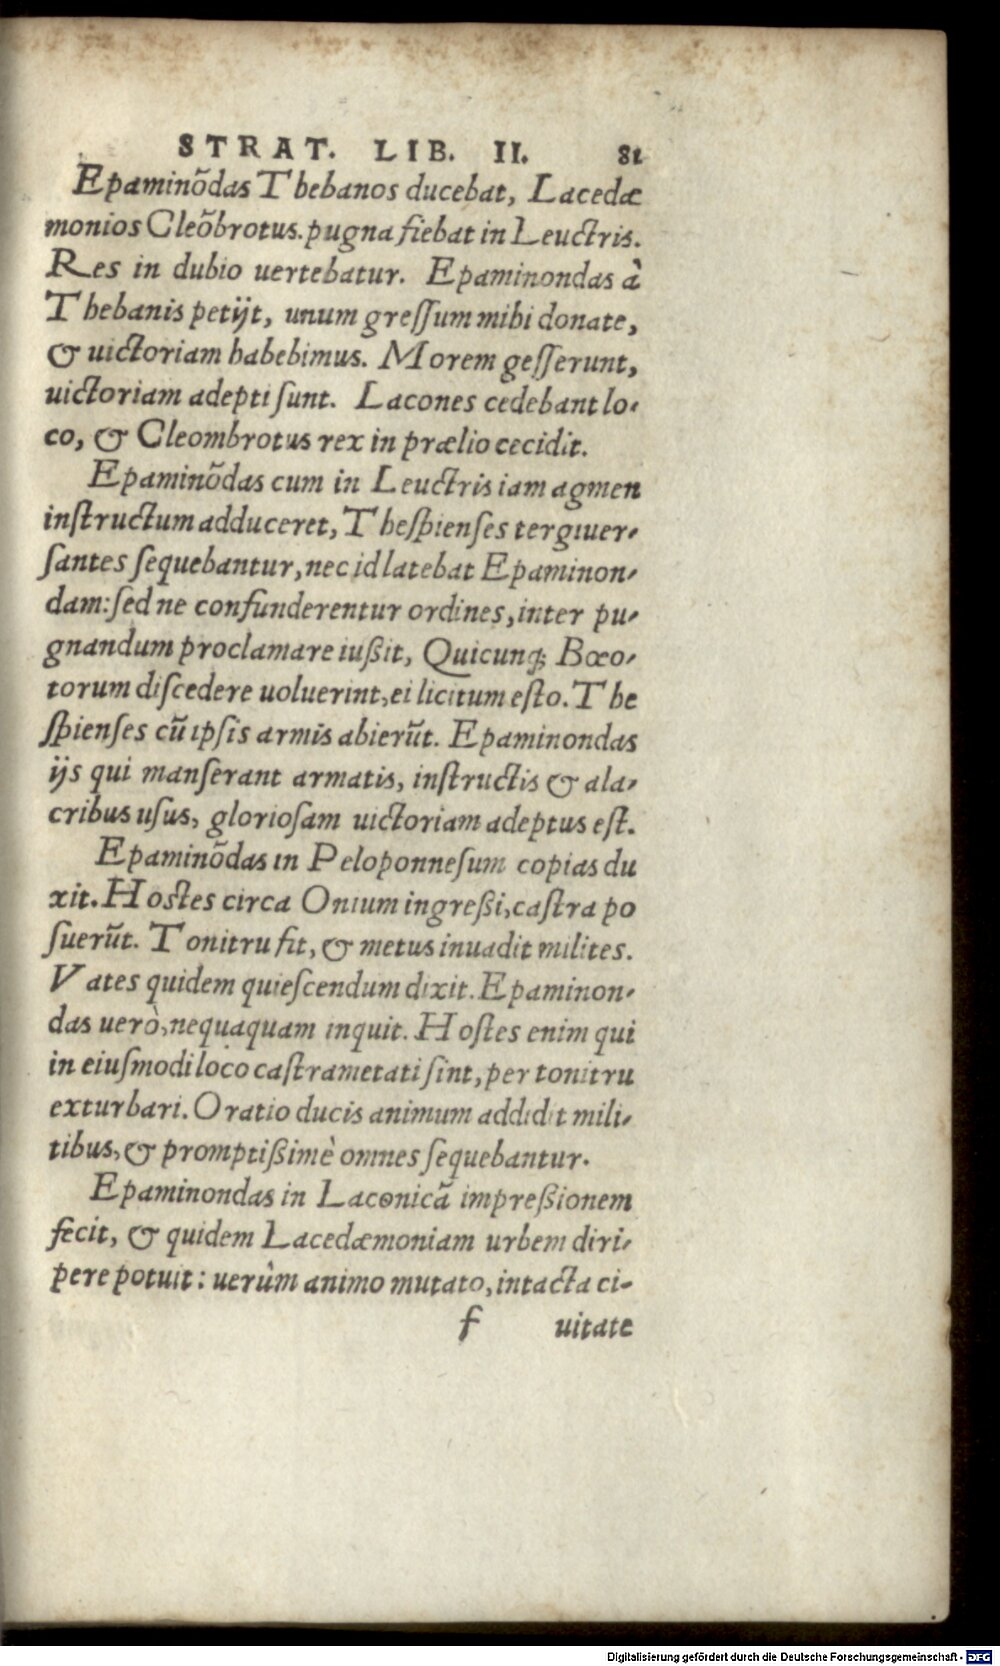 STRAT. LIB. II. 81
Epaminõdas Thebanos ducebat, Lacedæ
monios Cleõbrotus. pugna fiebat in Leuctris.
Res in dubio uertebatur. Epaminondas à
Thebanis petijt, unum greſſum mihi donate,
& uictoriam habebimus. Morem geſſerunt,
uictoriam adepti ſunt. Lacones cedebant lo-
co, & Cleombrotus rex in prælio cecidit.
Epaminõdas cum in Leuctris iam agmen
inſtructum adduceret, Theſpienſes tergiuer-
ſantes ſequebantur, nec id latebat Epaminon-
dam: ſed ne confunderentur ordines, inter pu-
gnandum proclamare iußit, Quicunq; Bœo-
torum diſcedere uoluerint, ei licitum eſto. The
ſpienſes cũ ipſis armis abierũt. Epaminondas
ijs qui manſerant armatis, inſtructis & ala-
cribus uſus, glorioſam uictoriam adeptus eſt.
Epaminõdas in Peloponneſum copias du
xit. Hostes circa Onium ingreßi, caſtra po
ſuerũt. Tonitru fit, & metus inuadit milites.
Vates quidem quieſcendum dixit. Epaminon-
das uerò, nequaquam inquit. Hoſtes enim qui
in eiuſmodi loco caſtrametati ſint, per tonitru
exturbari. Oratio ducis animum addidit mili-
tibus, & promptißimè omnes ſequebantur.
Epaminondas in Laconicã impreßionem
fecit, & quidem Lacedæmoniam urbem diri-
pere potuit: uerùm animo mutato, intacta ci-
f uitate
Digitalisierung gefördert durch die Deutsche Forschungsgemeinschaft - DFG